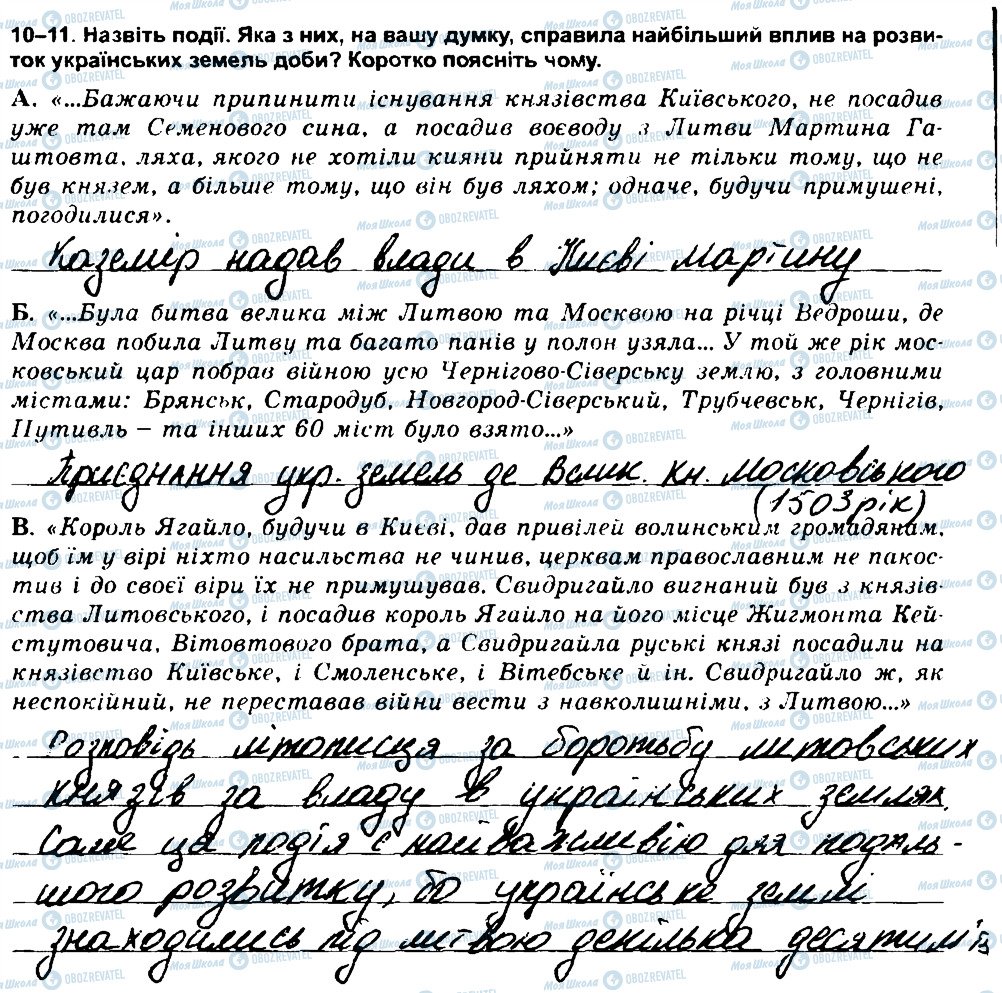 10–11. Назвіть події. Яка з них, на вашу думку, справила найбільший вплив на розви-
ток українських земель доби? Коротко поясніть чому.
А. «...Бажаючи припинити існування князівства Київського, не посадив
уже там Семенового сина, а посадив воєводу з Литви Мартина Га-
штовта, ляха, якого не хотіли кияни прийняти не тільки тому, що не
був князем, а більше тому, що він був ляхом; одначе, будучи примушені,
погодилися».
Каземір надав влади в Києві Мартину
Б. «...Була битва велика між Литвою та Москвою на річці Ведроши, де
Москва побила Литву та багато панів у полон узяла... У той же рік мос-
ковський цар побрав війною усю Чернігово-Сіверську землю, з головними
містами: Брянськ, Стародуб, Новгород-Сіверський, Трубчевськ, Чернігів,
Путивль – та інших 60 міст було взято...»
Приєднання укр. земель де Велик. кн. Московського
(1503 рік)
В. «Король Ягайло, будучи в Києві, дав привілей волинським громадянам,
щоб їм у вірі ніхто насильства не чинив, церквам православним не пакос-
тив і до своєї віри їх не примушував. Свидригайло вигнаний був з князів-
ства Литовського, і посадив король Ягайло на його місце Жигмонта Кей-
стутовича, Вітовтового брата, а Свидригайла руські князі посадили на
князівство Київське, і Смоленське, і Вітебське й ін. Свидригайло ж, як
неспокійний, не переставав війни вести з навколишніми, з Литвою...»
Розповідь літописця за боротьбу литовських
князів за владу в українських землях.
Саме ця подія є найважливію для подаль-
шого розвитку, бо українське землі
знаходились під литвою декілька десятиліть